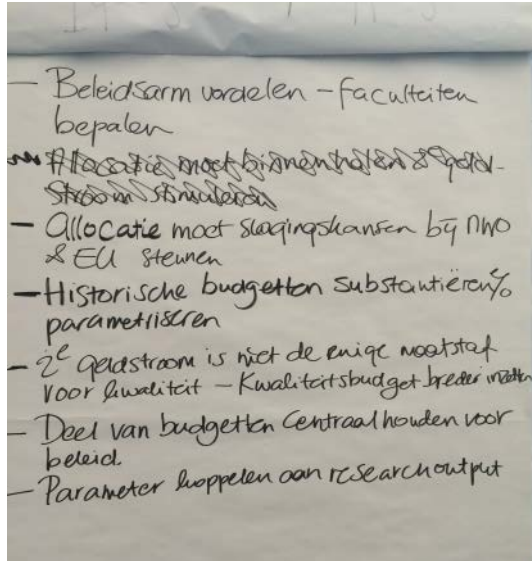 - Beleidsarm verdelen - faculteiten
bepalen
Allocatie moet binnenhalen 2e geld-
stroom stimuleren
- Allocatie moet slagingskansen bij NWO
& EU steunen
- Historische budgetten substantiëren/
parametriseren
- 2e geldstroom is niet de enige maatstaf
voor kwaliteit - Kwaliteitsbudget breder inzetten
- Deel van budgetten Centraal houden voor
beleid.
- Parameter koppelen aan research output